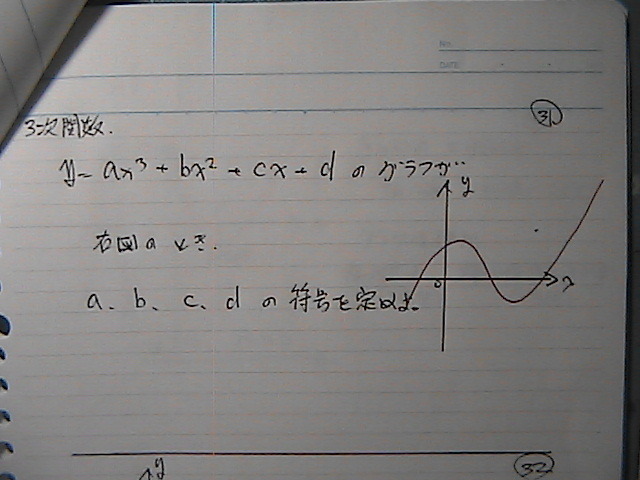 No.
DATE
31
3次関数.
y = ax³ + bx² + cx + d のグラフが
右図のとき.
a、b、c、dの符号を定めよ。
y
0
x
32
y